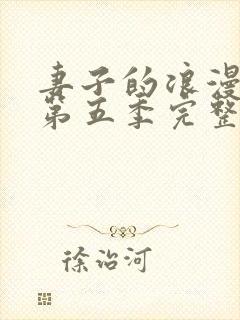 妻子的浪漫
第五季完整
徐治河